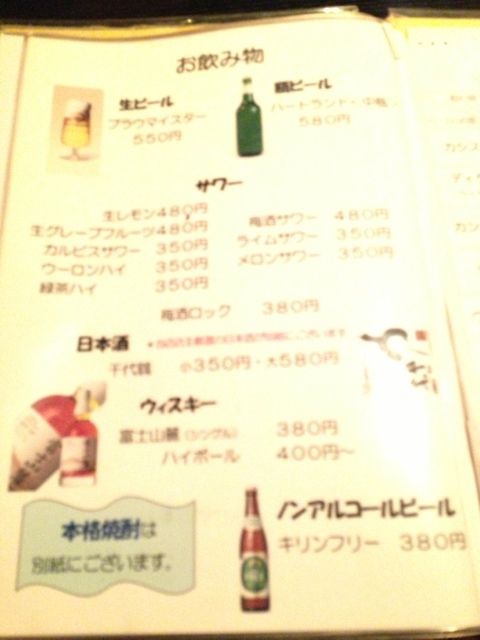 お飲み物
生ビール
ブラウマイスター
550円
瓶ビール
ハートランド・中瓶
580円
サワー
生レモン480円
生グレープフルーツ480円
カルピスサワー 350円
ウーロンハイ 350円
緑茶ハイ 350円
梅酒サワー 480円
ライムサワー 350円
メロンサワー 350円
梅酒ロック 380円
日本酒
千代鶴 小350円・大580円
ウィスキー
富士山麓(シングル) 380円
ハイボール 400円〜
本格焼酎は
別紙にございます。
ノンアルコールビール
キリンフリー 380円
カシス